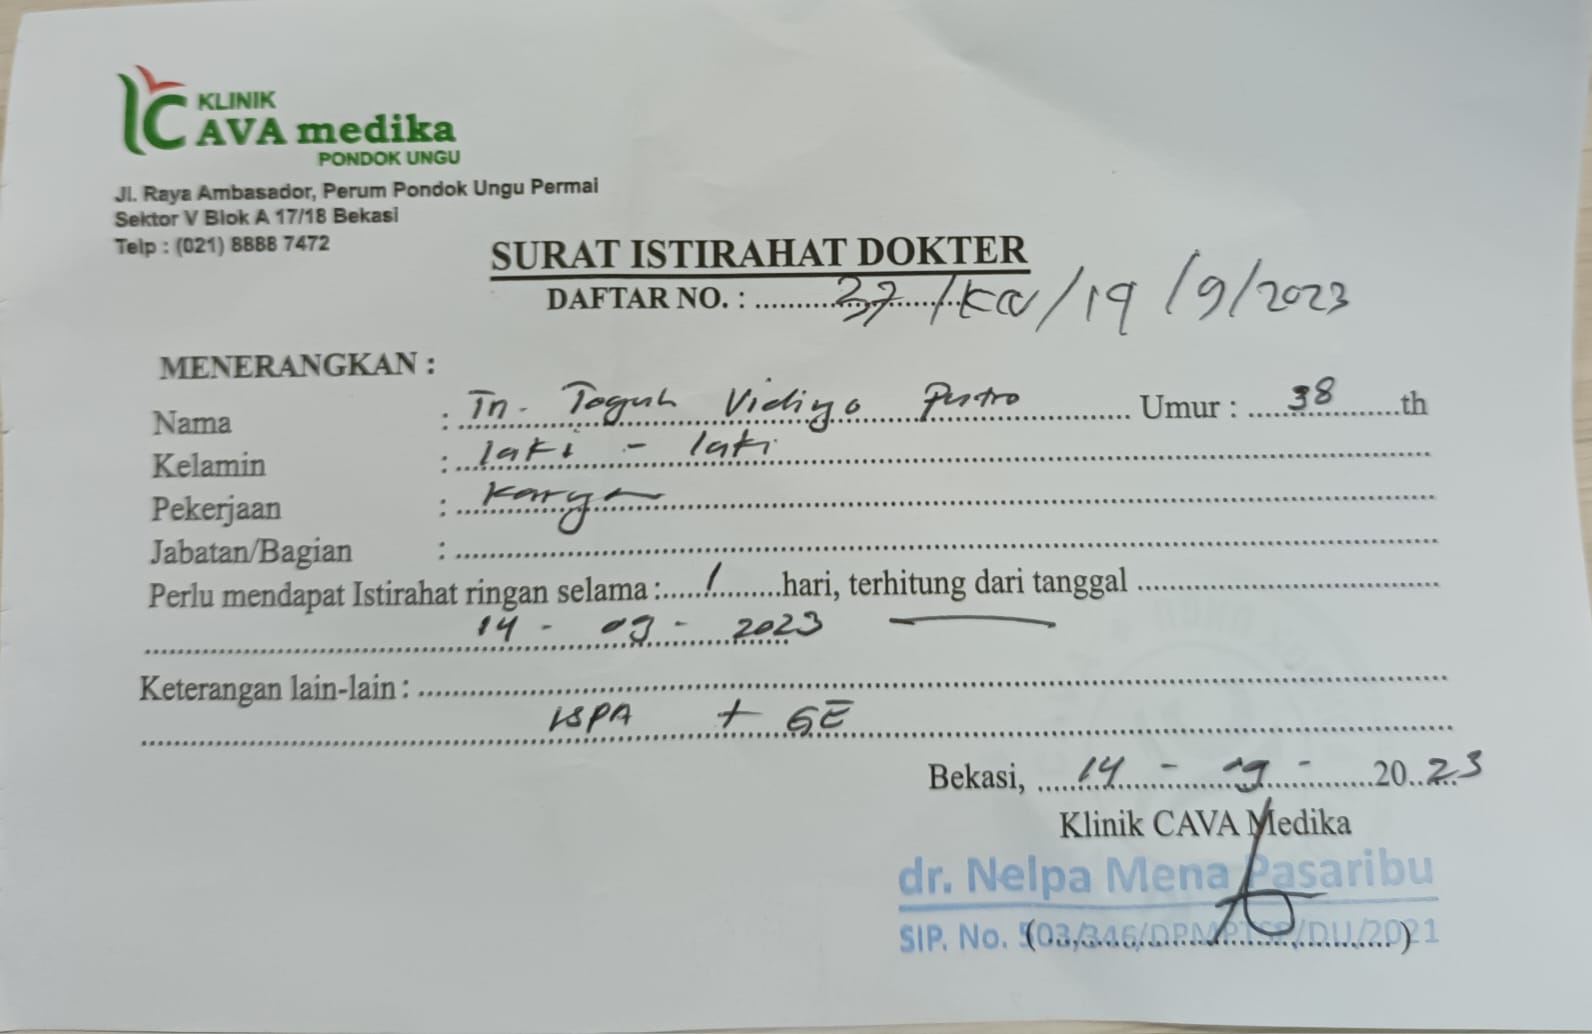 KLINIK
CAVA medika
PONDOK UNGU
Jl. Raya Ambasador, Perum Pondok Ungu Permai
Sektor V Blok A 17/18 Bekasi
Telp : (021) 8888 7472
SURAT ISTIRAHAT DOKTER
DAFTAR NO. : 37/KCV/19/9/2023
MENERANGKAN :
Nama : Tn. Toguh Vidiyo Putro Umur : 38 th
Kelamin : laki - laki
Pekerjaan : Karya
Jabatan/Bagian :
Perlu mendapat Istirahat ringan selama : 1 hari, terhitung dari tanggal
14 - 09 - 2023
Keterangan lain-lain :
ISPA + GE
Bekasi, 14 - 09 - 2023
Klinik CAVA Medika
dr. Nelpa Mena Pasaribu
SIP. No. 503/346/DPMPTSP/DU/2021